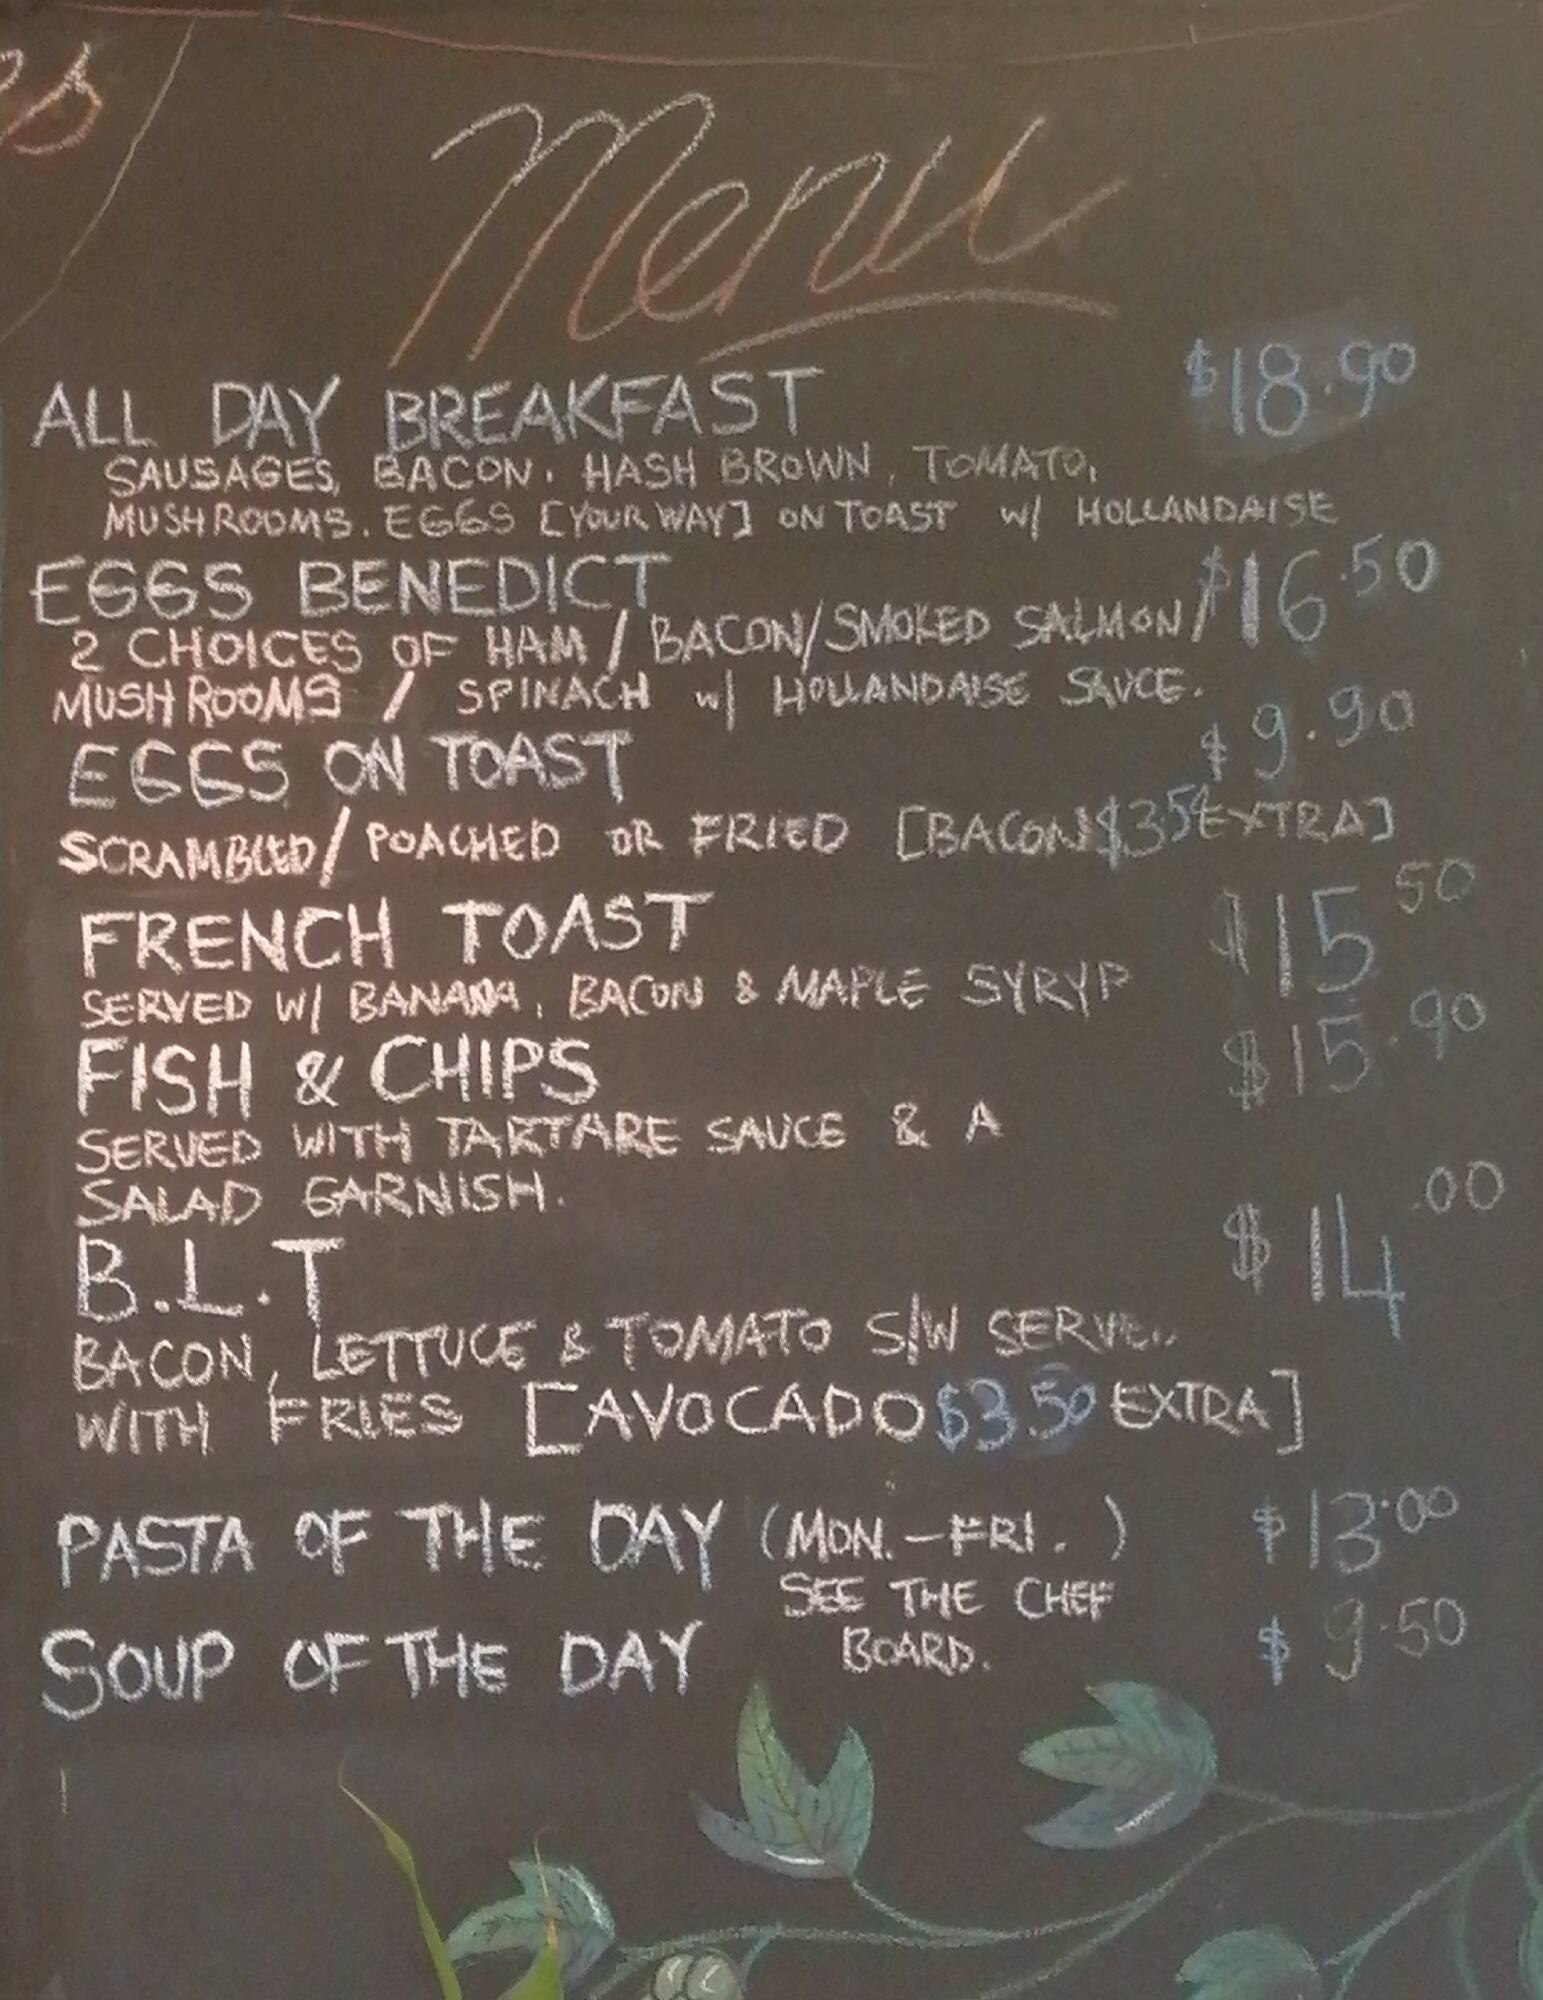 es
Menu
ALL DAY BREAKFAST $18.90
SAUSAGES, BACON. HASH BROWN, TOMATO,
MUSHROOMS. EGGS [YOUR WAY] ON TOAST w/ HOLLANDAISE
EGGS BENEDICT $16.50
2 CHOICES OF HAM / BACON/SMOKED SALMON/
MUSHROOMS / SPINACH w/ HOLLANDAISE SAUCE.
EGGS ON TOAST $9.90
SCRAMBLED/ POACHED OR FRIED [BACON EXTRA]
FRENCH TOAST $15 50
SERVED W/ BANANA, BACON & MAPLE SYRYP
FISH & CHIPS $15.90
SERVED WITH TARTARE SAUCE & A
SALAD GARNISH.
B.L.T $14.00
BACON, LETTUCE & TOMATO S/W SERVED
WITH FRIES [AVOCADO $3.50 EXTRA]
PASTA OF THE DAY (MON.-FRI.) $13.00
SEE THE CHEF
SOUP OF THE DAY BOARD. $9.50